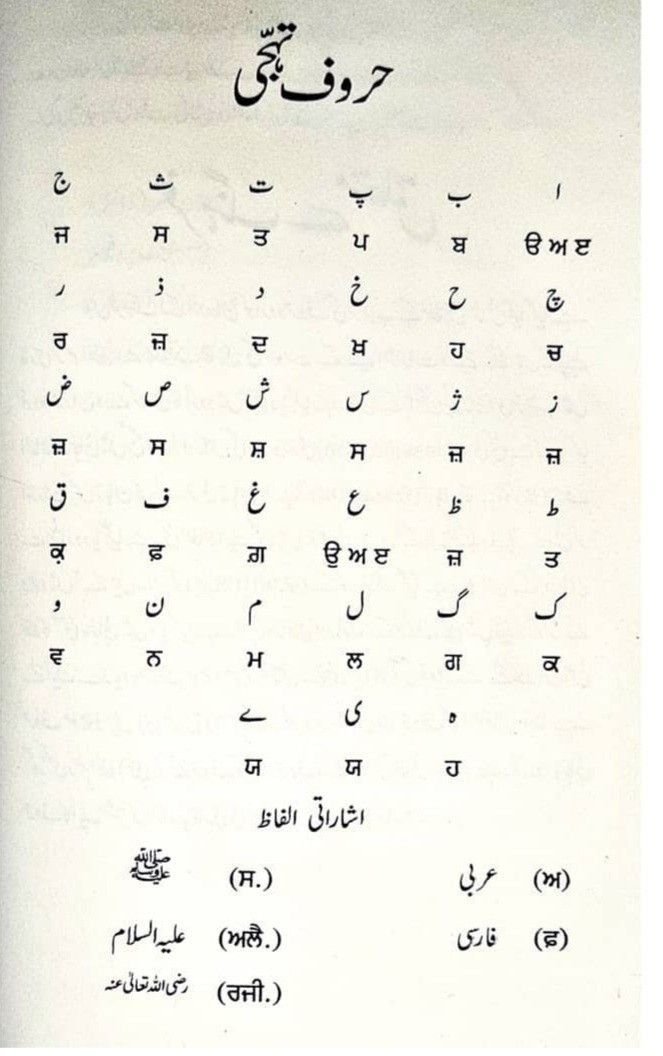 حروف تہجّی
ا ب پ ت ث ج
ੳ ਅ ੲ ਬ ਪ ਤ ਸ ਜ
چ ح خ د ذ ر
ਚ ਹ ਖ਼ ਦ ਜ਼ ਰ
ز ژ س ش ص ض
ਜ਼ ਜ਼ ਸ ਸ਼ ਸ ਜ਼
ط ظ ع غ ف ق
ਤ ਜ਼ ੳ ਅ ੲ ਗ਼ ਫ਼ ਕ਼
ک گ ل م ن و
ਕ ਗ ਲ ਮ ਨ ਵ
ہ ی ے
ਹ ਯ ਯ
اشاراتی الفاظ
(ਅ) عربی (ਸ.) ﷺ
(ਫ਼) فارسی (ਅਲੈ.) علیہ السلام
(ਰਜੀ.) رضی اللہ تعالیٰ عنہ